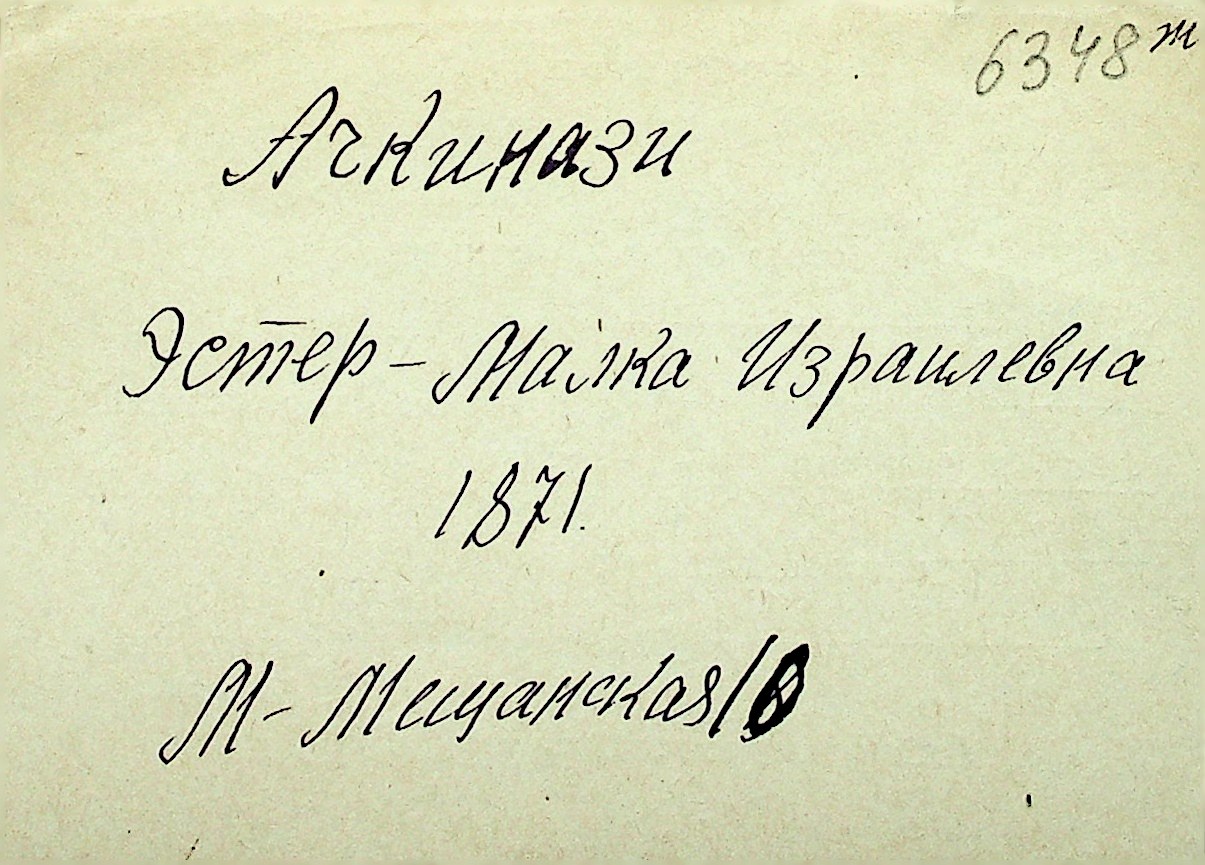 6348 ж
Ачкинази
Эстер-Малка Израилевна
1871.
М-Мещанская